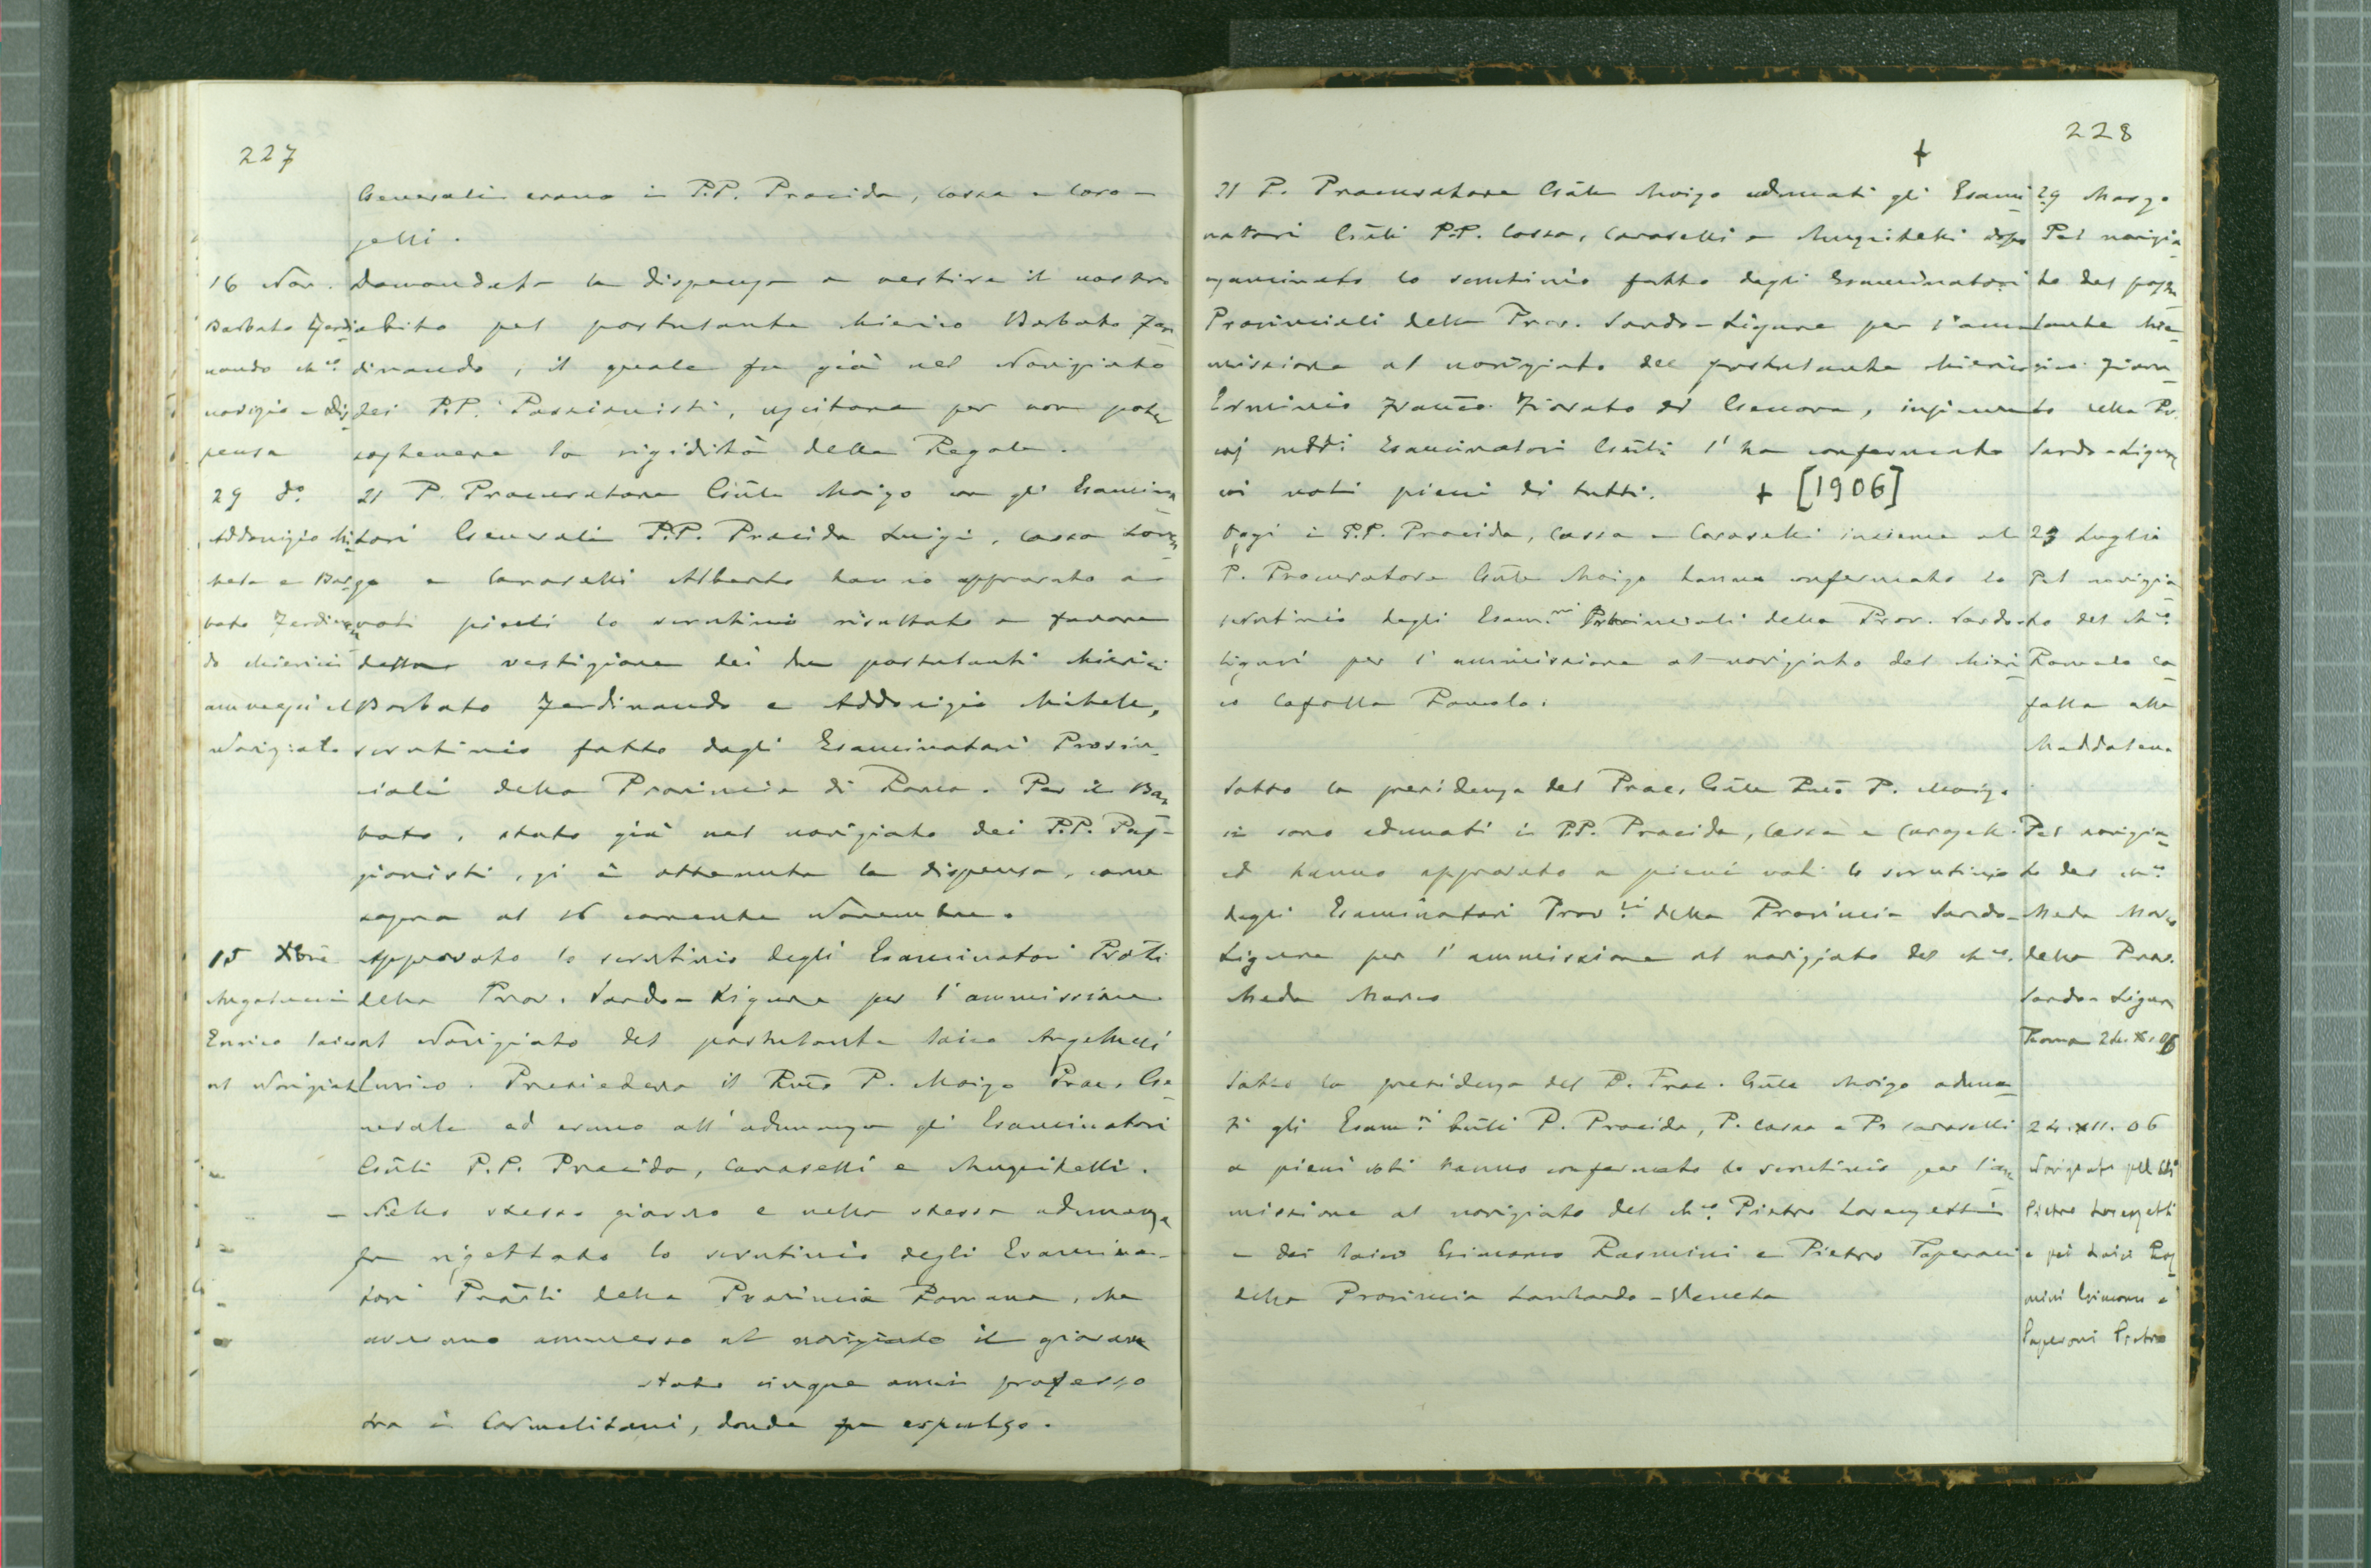 227
Generali erano i P.P. Procida, Cassa e Cara-
selli.
16 Nov.
Barbato Ferdi-
nando ch.co
novizio e dis-
pensa
Domandata la dispensa a vestire il nostro
abito pel postulante chierico Barbato Fer-
dinando, il quale fu già nel Noviziato
dei P.P. Passionisti, uscitone per non poter
sostenere la rigidità della Regola.
29 do.
Addonizio Mi-
chele e Bar-
bato Ferdinan-
do chierici
ammessi al
Noviziato
Il P. Procuratore Gñle Moizo con gli Esamina-
tori Generali P.P. Procida Luigi, Cassa Loren-
zo e Caraselli Alberto hanno approvato a
voti pieni lo scrutinio risultato a favore
della vestizione dei due postulanti chierici
Barbato Ferdinando e Addonizio Michele,
scrutinio fatto dagli Esaminatori Provin-
ciali della Provincia di Roma. Per il Bar-
bato, stato già nel noviziato dei P.P. Pas-
sionisti, si è ottenuta la dispensa, come
sopra al 16 corrente Novembre.
15 Xbre
Angelucci
Enrico laico
al Noviziato
Approvato lo scrutinio degli Esaminatori Prõli
della Prov. Sardo-Ligure per l'ammissione
al Noviziato del postulante laico Angelucci
Enrico. Presiedeva il Rmõ P. Moizo Proc. Ge-
nerale ed erano all'adunanza gli Esaminatori
Gñli P.P. Procida, Caraselli e Muscitelli.
- Nello stesso giorno e nella stessa adunanza
fu rigettato lo scrutinio degli Esamina-
tori Prõli della Provincia Romana, che
avevano ammesso al noviziato il giovane
stato cinque anni professo
tra i Carmelitani, donde fu espulso.
228
+
Il P. Procuratore Gñle Moizo adunati gli Esami-
natori Gñli P.P. Cassa, Caraselli e Muscitelli dopo
esaminato lo scrutinio fatto dagli Esaminatori
Provinciali della Prov. Sardo-Ligure per l'am-
missione al noviziato del postulante chierico
Erminio Franco Fiorato di Genova, insieme
coi suddi Esaminatori Gñli l'ha confermato
coi voti pieni di tutti. + [1906]
29 Marzo
Pel novizia-
to del postu-
lante chie-
rico Fiora-
to della Pr.
Sardo-Ligure
Oggi i P.P. Procida, Cassa e Caraselli insieme al
P. Procuratore Gñle Moizo hanno confermato lo
scrutinio degli Esam.ri Provinciali della Prov. Sardo-
Ligure per l'ammissione al noviziato del chieri-
co Cafolla Romolo.
23 Luglio
Pel novizia-
to del ch.co
Romolo Ca-
folla alla
Maddalena
Sotto la presidenza del Proc. Gñle Rmõ P. Moizo
si sono adunati i P.P. Procida, Cassa e Caraselli
ed hanno approvato a pieni voti lo scrutinio
degli Esaminatori Prov.li della Provincia Sardo-
Ligure per l'ammissione al noviziato del ch.co
Meda Marco
Pel novizia-
to del ch.co
Meda Marco
della Prov.
Sardo-Ligure
Roma 24.X.06
Sotto la presidenza del P. Proc. Gñle Moizo aduna-
ti gli Esam.ri Gñli P. Procida, P. Cassa e P. Caraselli
a pieni voti hanno confermato lo scrutinio per l'am-
missione al noviziato del ch.co Pietro Lorenzetti
e dei laici Giacomo Rasmini e Pietro Paperoni
della Provincia Lombardo-Veneta
24.XII.06
Noviziato pel ch.co
Pietro Lorenzetti
e pei laici Ras-
mini Giacomo e
Paperoni Pietro